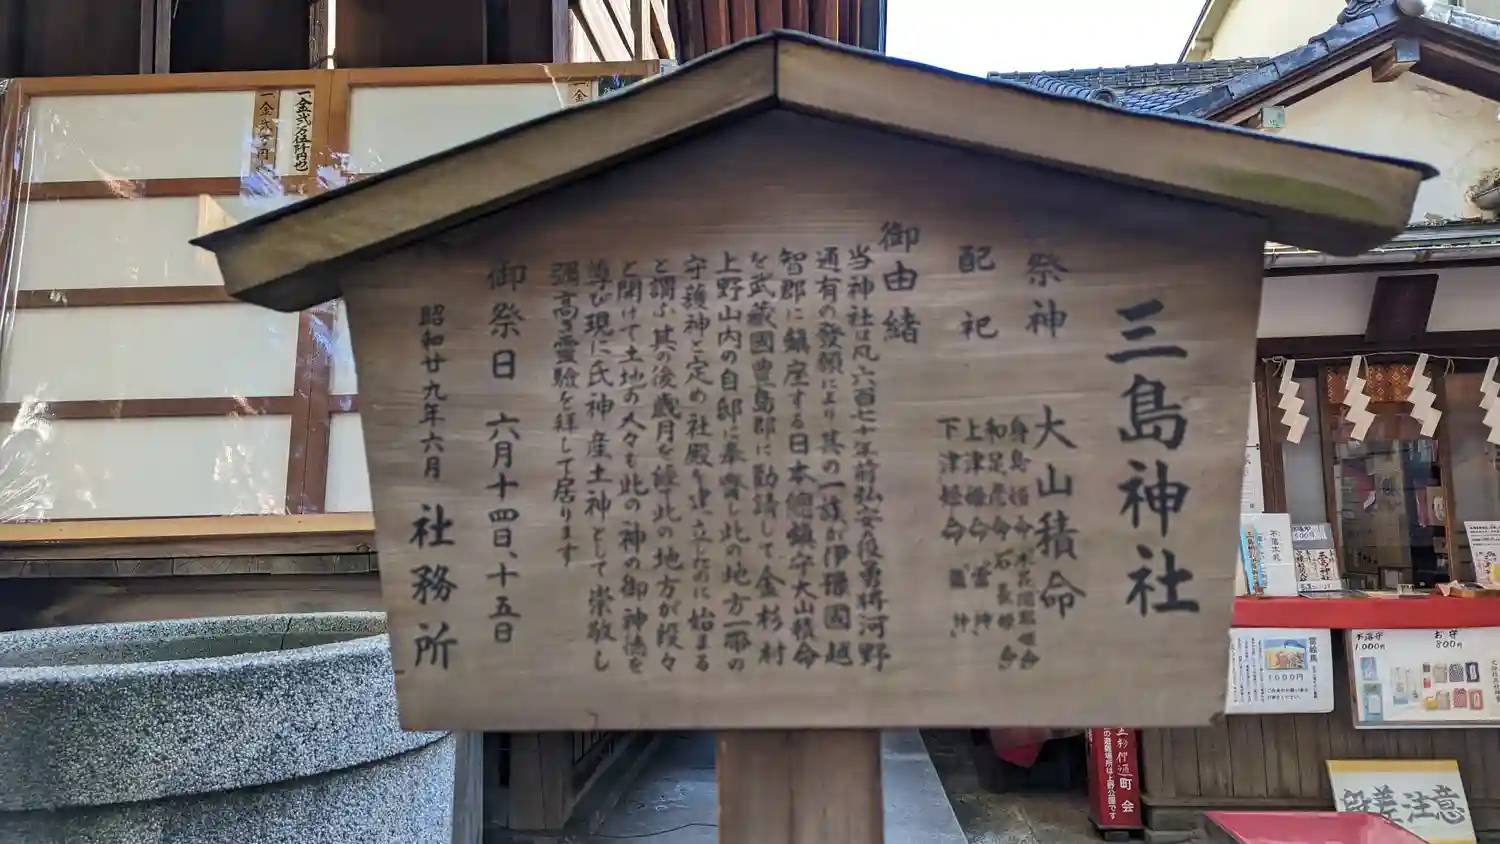 三島神社
祭神 大山積命
配祀
身島姫命 木花開耶姫命
和足彦命 石長姫命
上津姫命 雷神
下津姫命 龍神
御由緒
当神社は凡六百七十年前弘安役勇将河野
通有の發願により其の一族が伊豫國越
智郡に鎮座する日本總鎮守大山積命
を武蔵國豊島郡に勧請して金杉村
上野山内の自邸に奉齋し此の地方一帯の
守護神と定め社殿を建立たのに始まる
と謂ふ其の後歳月を經て此の地方が段々
と開けて土地の人々も此の神の御神徳を
尊び現に氏神産土神として崇敬し
彌高き霊験を拝して居ります
御祭日 六月十四日、十五日
昭和廿九年六月 社務所
一金弐万伍阡円也
不落守
1000円
お守
800円
雷絵馬
1000円
段差注意
町会
の避難場所は上野公園です